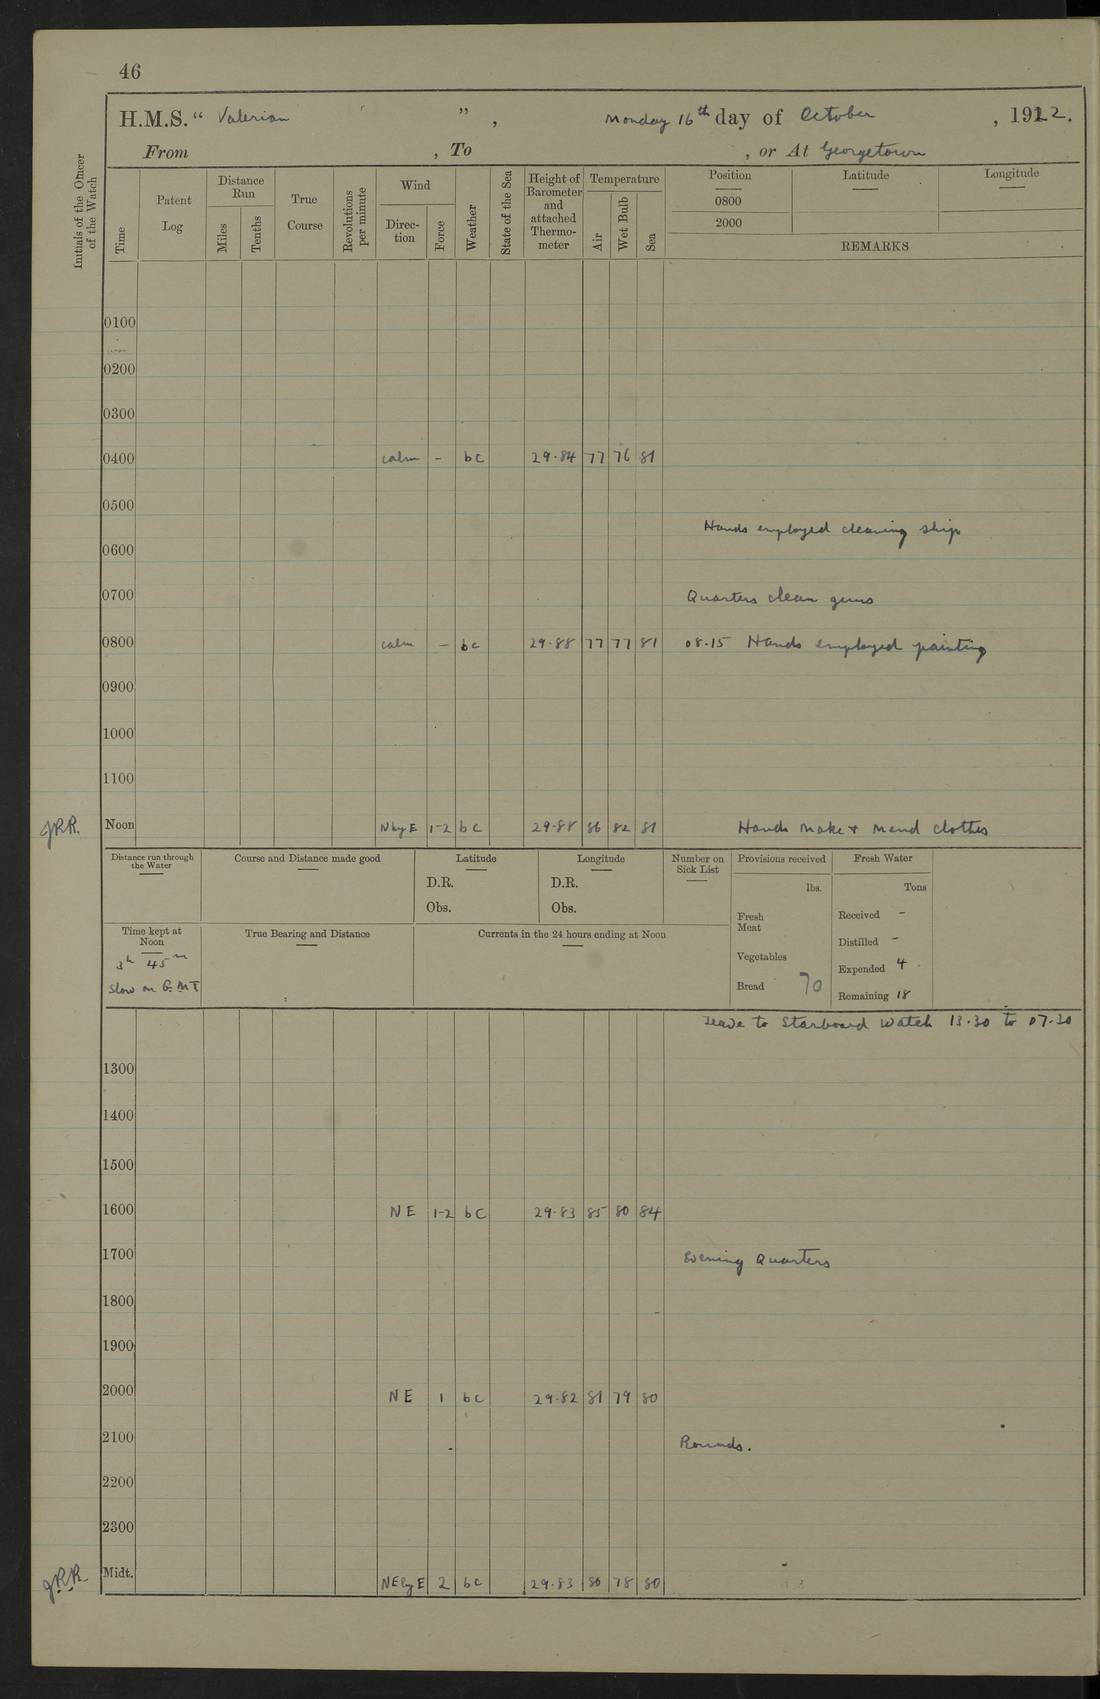 46
H.M.S. “ Valerian ” , Monday 16th day of October , 1922.
From , To , or At Georgetown
Initials of the Officer of the Watch
Time
Patent Log
Distance Run
Miles
Tenths
True Course
Revolutions per minute
Wind
Direction
Force
Weather
State of the Sea
Height of Barometer and attached Thermometer
Temperature
Air
Wet Bulb
Sea
Position
0800
2000
Latitude
Longitude
REMARKS
0100
0200
0300
0400 calm - bc 29.84 77 76 81
0500
Hands employed cleaning ship
0600
0700 Quarters clean guns
0800 calm - bc 29.88 77 77 81 08.15 Hands employed painting
0900
1000
1100
JRR. Noon N by E 1-2 bc 29.88 86 82 81 Hands make & mend clothes
Distance run through the Water
Course and Distance made good
Latitude
D.R.
Obs.
Longitude
D.R.
Obs.
Number on Sick List
Provisions received
lbs.
Fresh Meat
Vegetables
Bread 70
Fresh Water
Tons
Received -
Distilled -
Expended 4
Remaining 18
Time kept at Noon
3h 45m
Slow on G.M.T
True Bearing and Distance
Currents in the 24 hours ending at Noon
Leave to Starboard Watch 13.30 to 07.30
1300
1400
1500
1600 NE 1-2 bc 29.83 85 80 84
1700 Evening Quarters
1800
1900
2000 NE 1 bc 29.82 81 79 80
2100 Rounds.
2200
2300
JRR. Midt. NE by E 2 bc 29.83 80 78 80